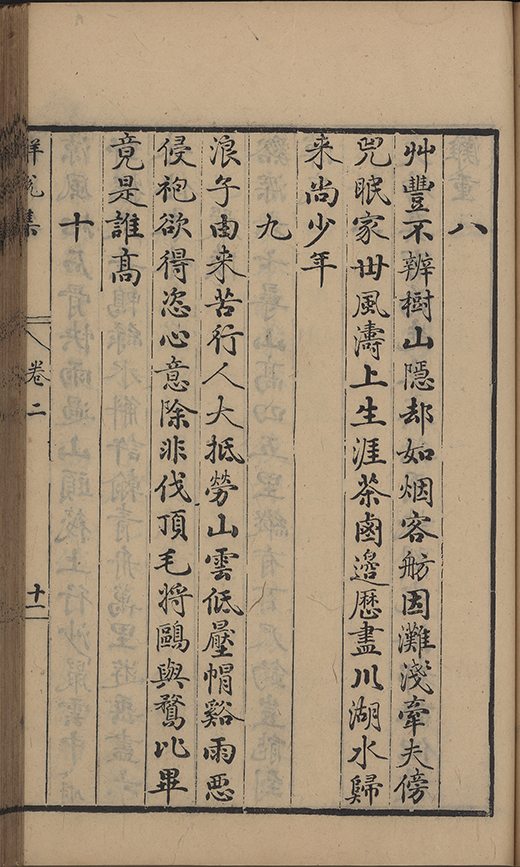 八
艸豐不辨樹山隱却如烟客舫因灘淺牽夫傍
兕眠家丗風濤上生涯茶鹵邉歷盡川湖水歸
来尚少年
九
浪子由来苦行人大抵勞山雲低壓帽谿雨惡
侵袍欲得恣心意除非伐頂毛將鷗與鶩比畢
竟是誰髙
十
卷二
十一